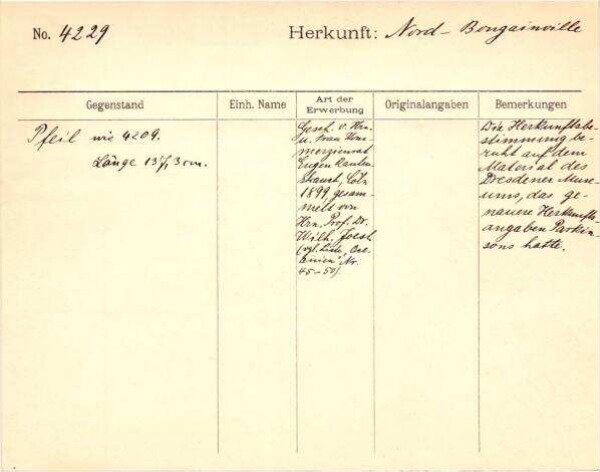 No. 4229
Herkunft: Nord-Bougainville
Gegenstand
Einh. Name
Art der Erwerbung
Originalangaben
Bemerkungen
Pfeil wie 4209.
Länge 137,3 cm.
Gesch. v. Hrn.
u. Frau Kom-
merzienrat
Eugen Rauten-
strauch, Cöln
1899, gesam-
melt von
Hrn. Prof. Dr.
Wilh. Joest.
(vgl. Liste
Nr.
45-50)
Die Herkunftsbe-
stimmung be-
ruht auf dem
Material des
Dresdener Muse-
ums, das ge-
nauere Herkunfts-
angaben Parkin-
sons hatte.